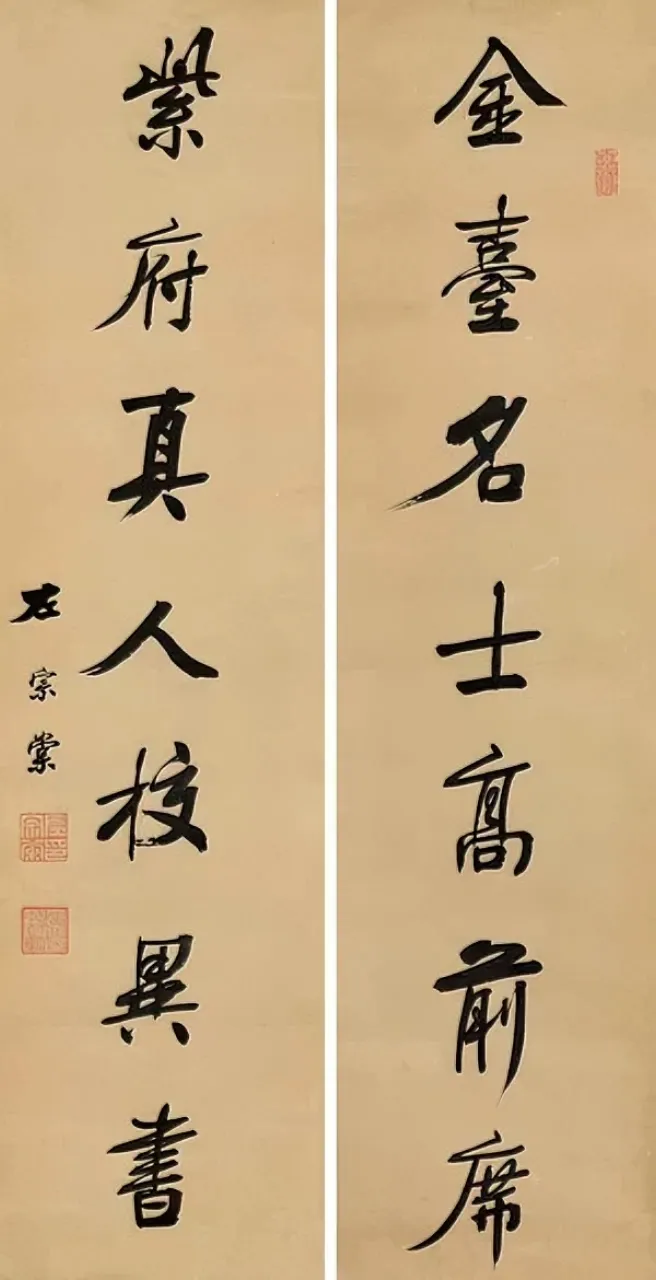 金臺名士高前席
紫府真人校異書
左宗棠